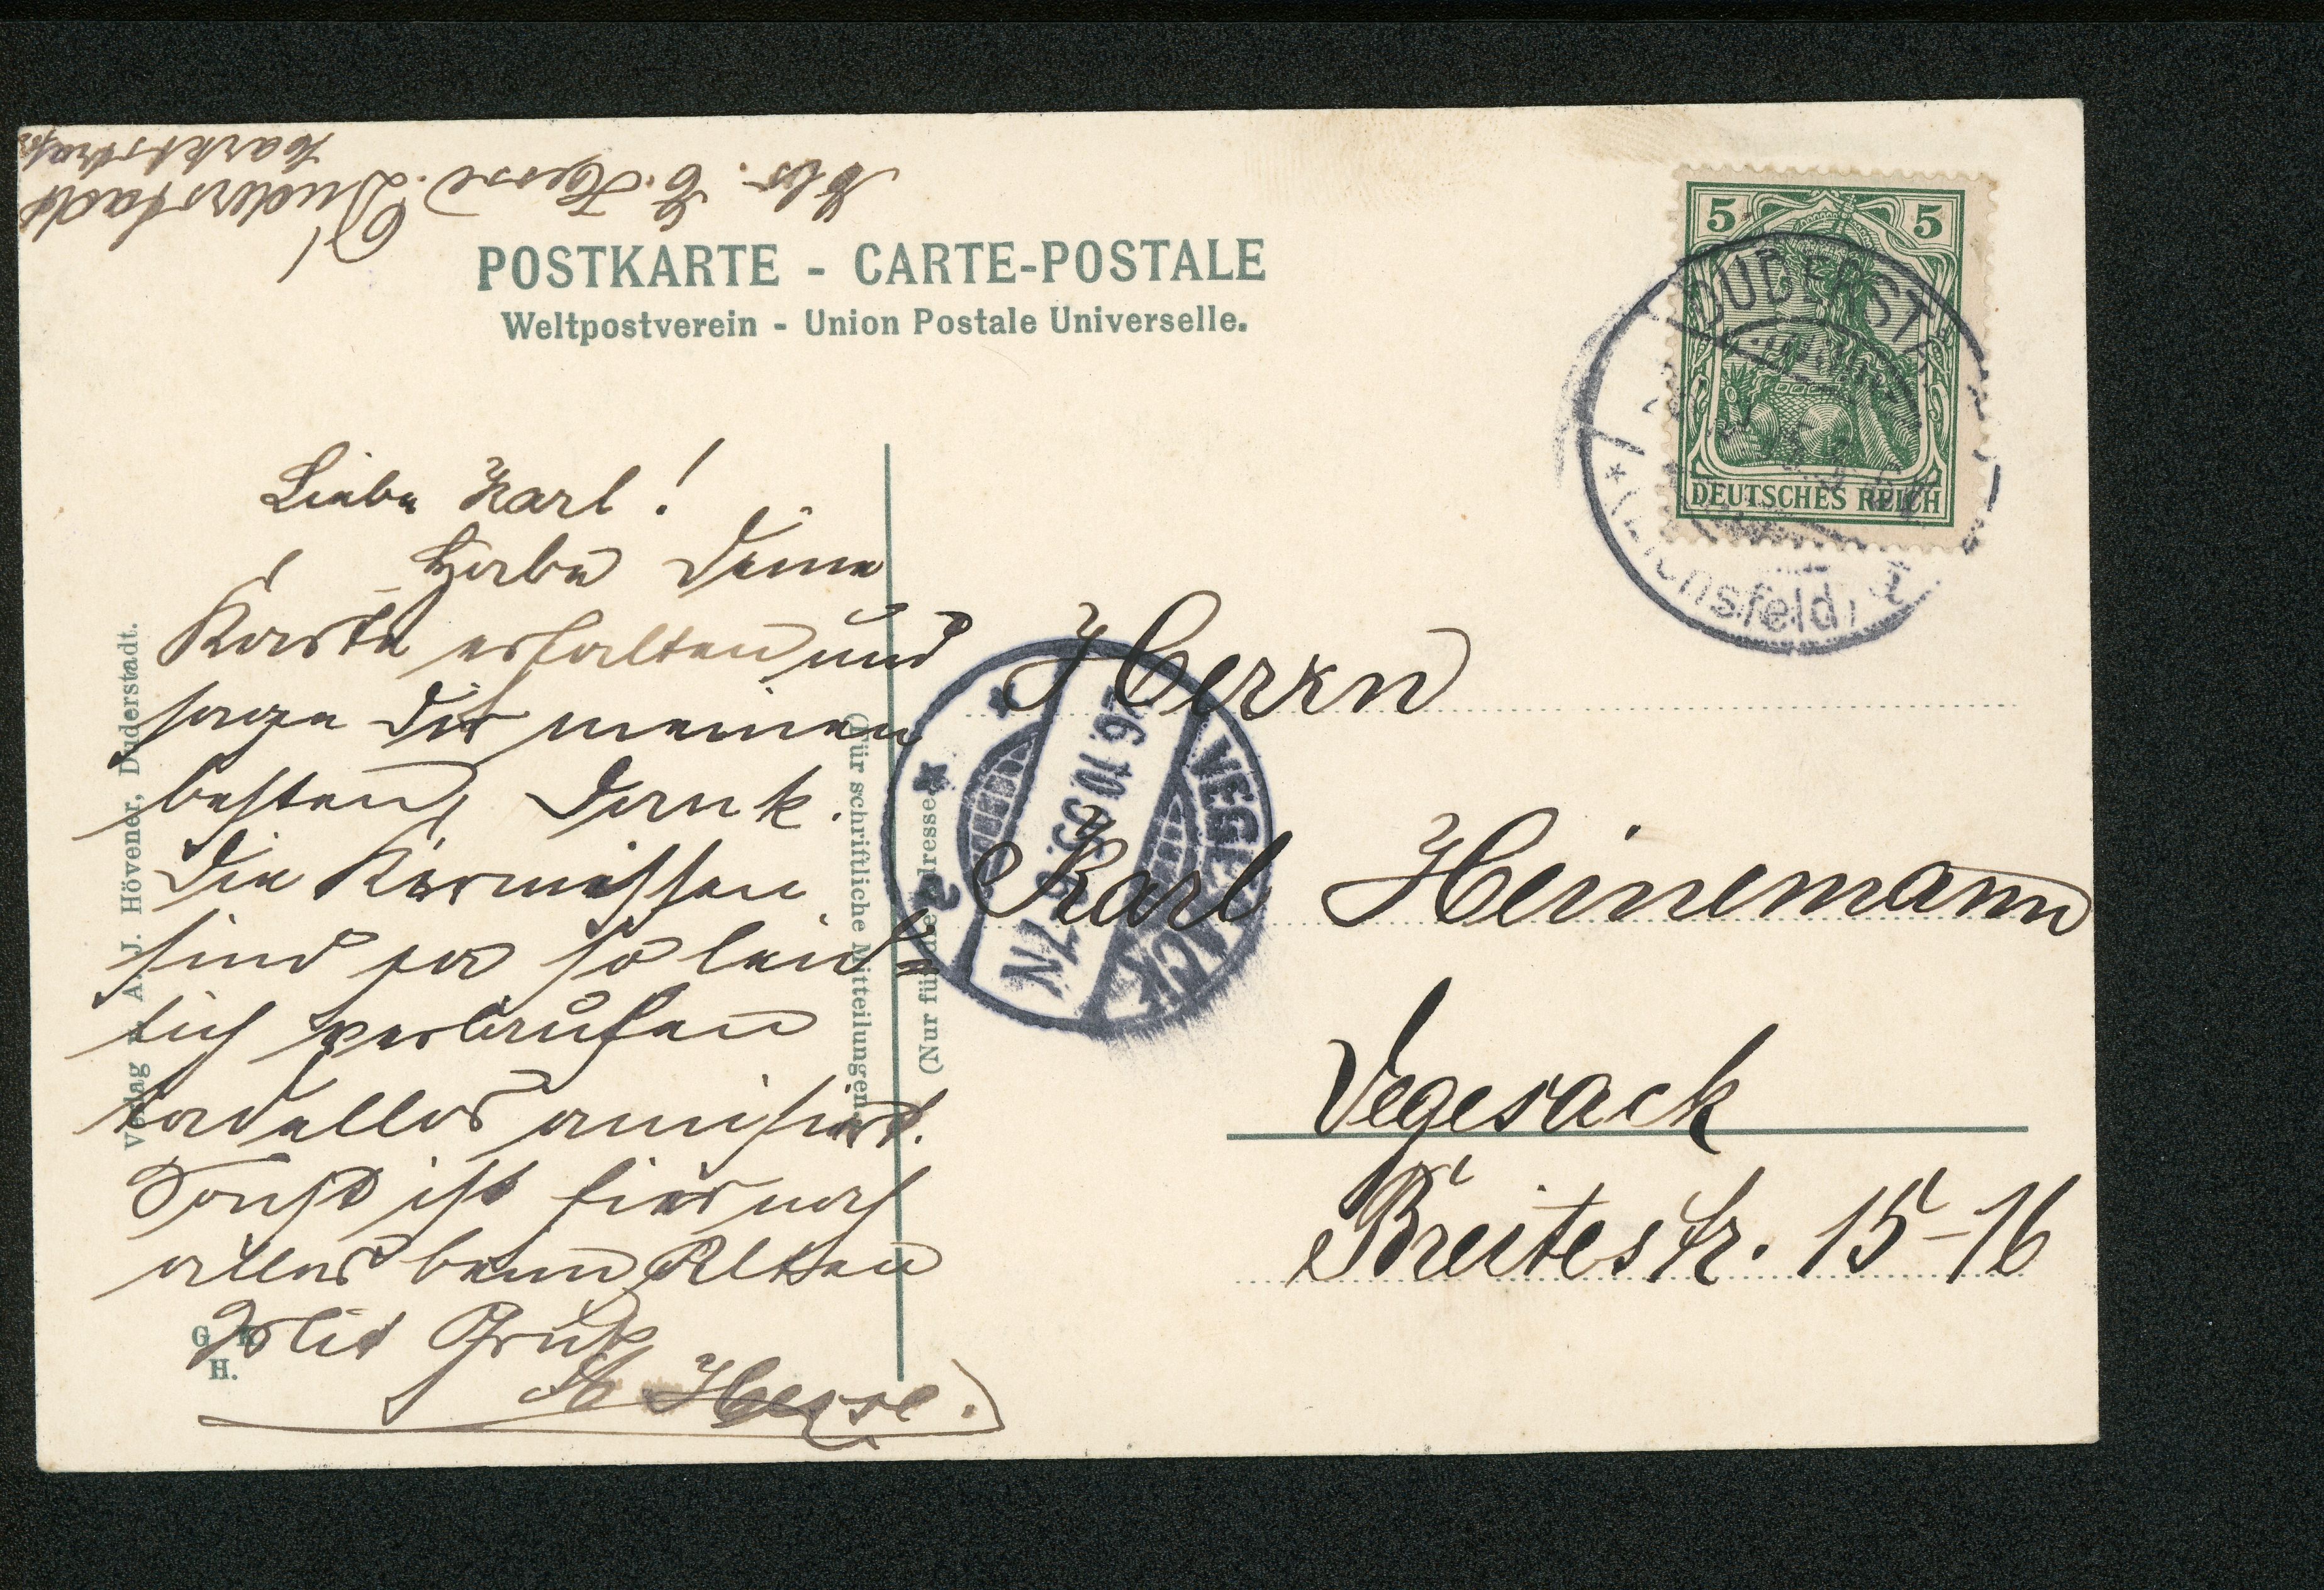 Abs. C. Hesse. Duderstadt
Marktstraße
POSTKARTE - CARTE-POSTALE
Weltpostverein - Union Postale Universelle.
5 5
DEUTSCHES REICH
DUDERSTADT
(Eichsfeld)
Liebe Karl!
Habe Deine
Karte erhalten und
sage Dir meinen
besten Dank.
Die Kirmessen
sind ja so leid-
lich verlaufen
tadellos amisiert.
Sonst ist hier noch
alles beim Alten
Mit Gruß
Hesse.
Verlag A. J. Hövener, Duderstadt.
G. K.
H.
(Für schriftliche Mitteilungen.)
(Nur für die Adresse.)
VEGESACK
26.10.05. 7N
Herrn
Karl Heinemann
Vegesack
Breitestr. 15-16